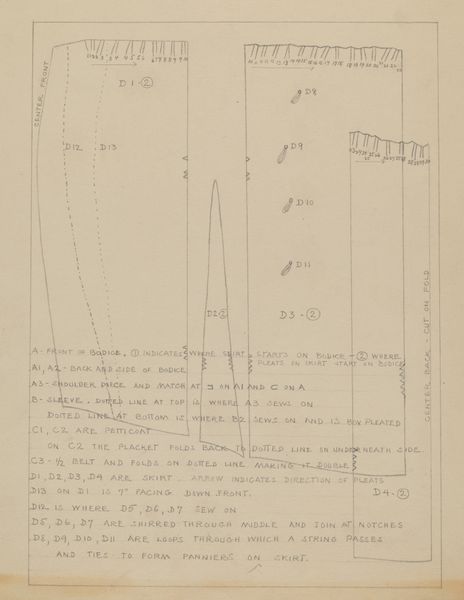 CENTER FRONT
D 1 - ②
D12
D13
D8
D9
D10
D11
D2-②
D3 - ②
CENTER BACK - CUT ON FOLD
D4-②
A - FRONT OF BODICE. ① INDICATES WHERE SKIRT STARTS ON BODICE - ② WHERE
PLEATS IN SKIRT START ON BODICE
A1, A2 - BACK AND SIDE OF BODICE
A3 - SHOULDER PIECE AND MATCH AT ON A1 AND C ON A
B - SLEEVE. DOTTED LINE AT TOP IS WHERE A3 SEWS ON
DOTTED LINE AT BOTTOM IS WHERE B2 SEWS ON AND IS BOX PLEATED
C1, C2 ARE PETTICOAT
ON C2 THE PLACKET FOLDS BACK TO DOTTED LINE ON UNDERNEATH SIDE
C3 - ½ BELT AND FOLDS ON DOTTED LINE MAKING IT DOUBLE
D1, D2, D3, D4 ARE SKIRT. ARROW INDICATES DIRECTION OF PLEATS
D13 ON D1 IS 7" FACING DOWN FRONT.
D12 IS WHERE D5, D6, D7 SEW ON
D5, D6, D7 ARE SHIRRED THROUGH MIDDLE AND JOIN AT NOTCHES
D8, D9, D10, D11 ARE LOOPS THROUGH WHICH A STRING PASSES
AND TIES TO FORM PANNIERS ON SKIRT.